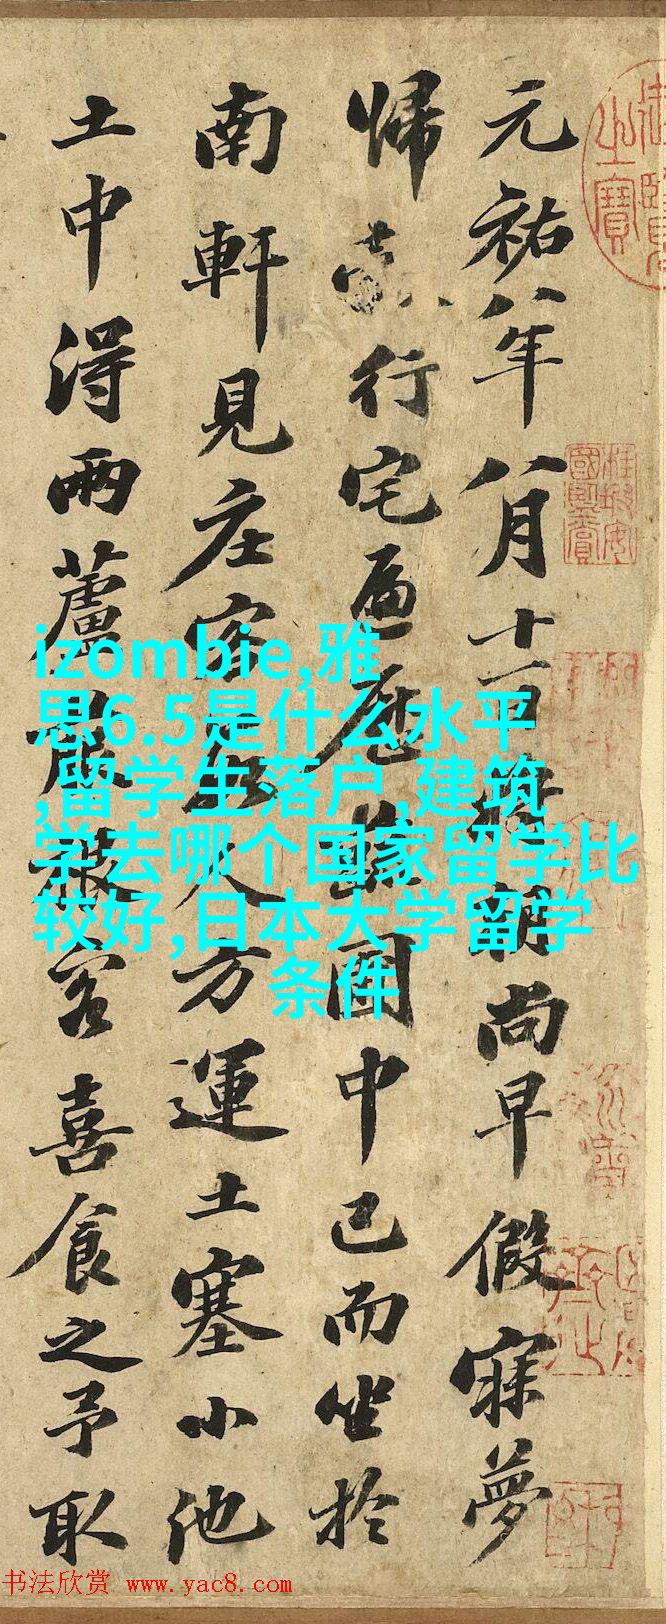 元祐八年八月十一日將朝尚早假寐夢
歸行宅遍歷蔬園中已而坐於
南軒見庄客數人方運土塞小池
土中得兩蘆菔根客喜食之予取
izombie,雅
思6.5是什么水平
,留学生落户,建筑
学去哪个国家留学比
较好,日本大学留学
条件
书法欣赏 www.yac8.com